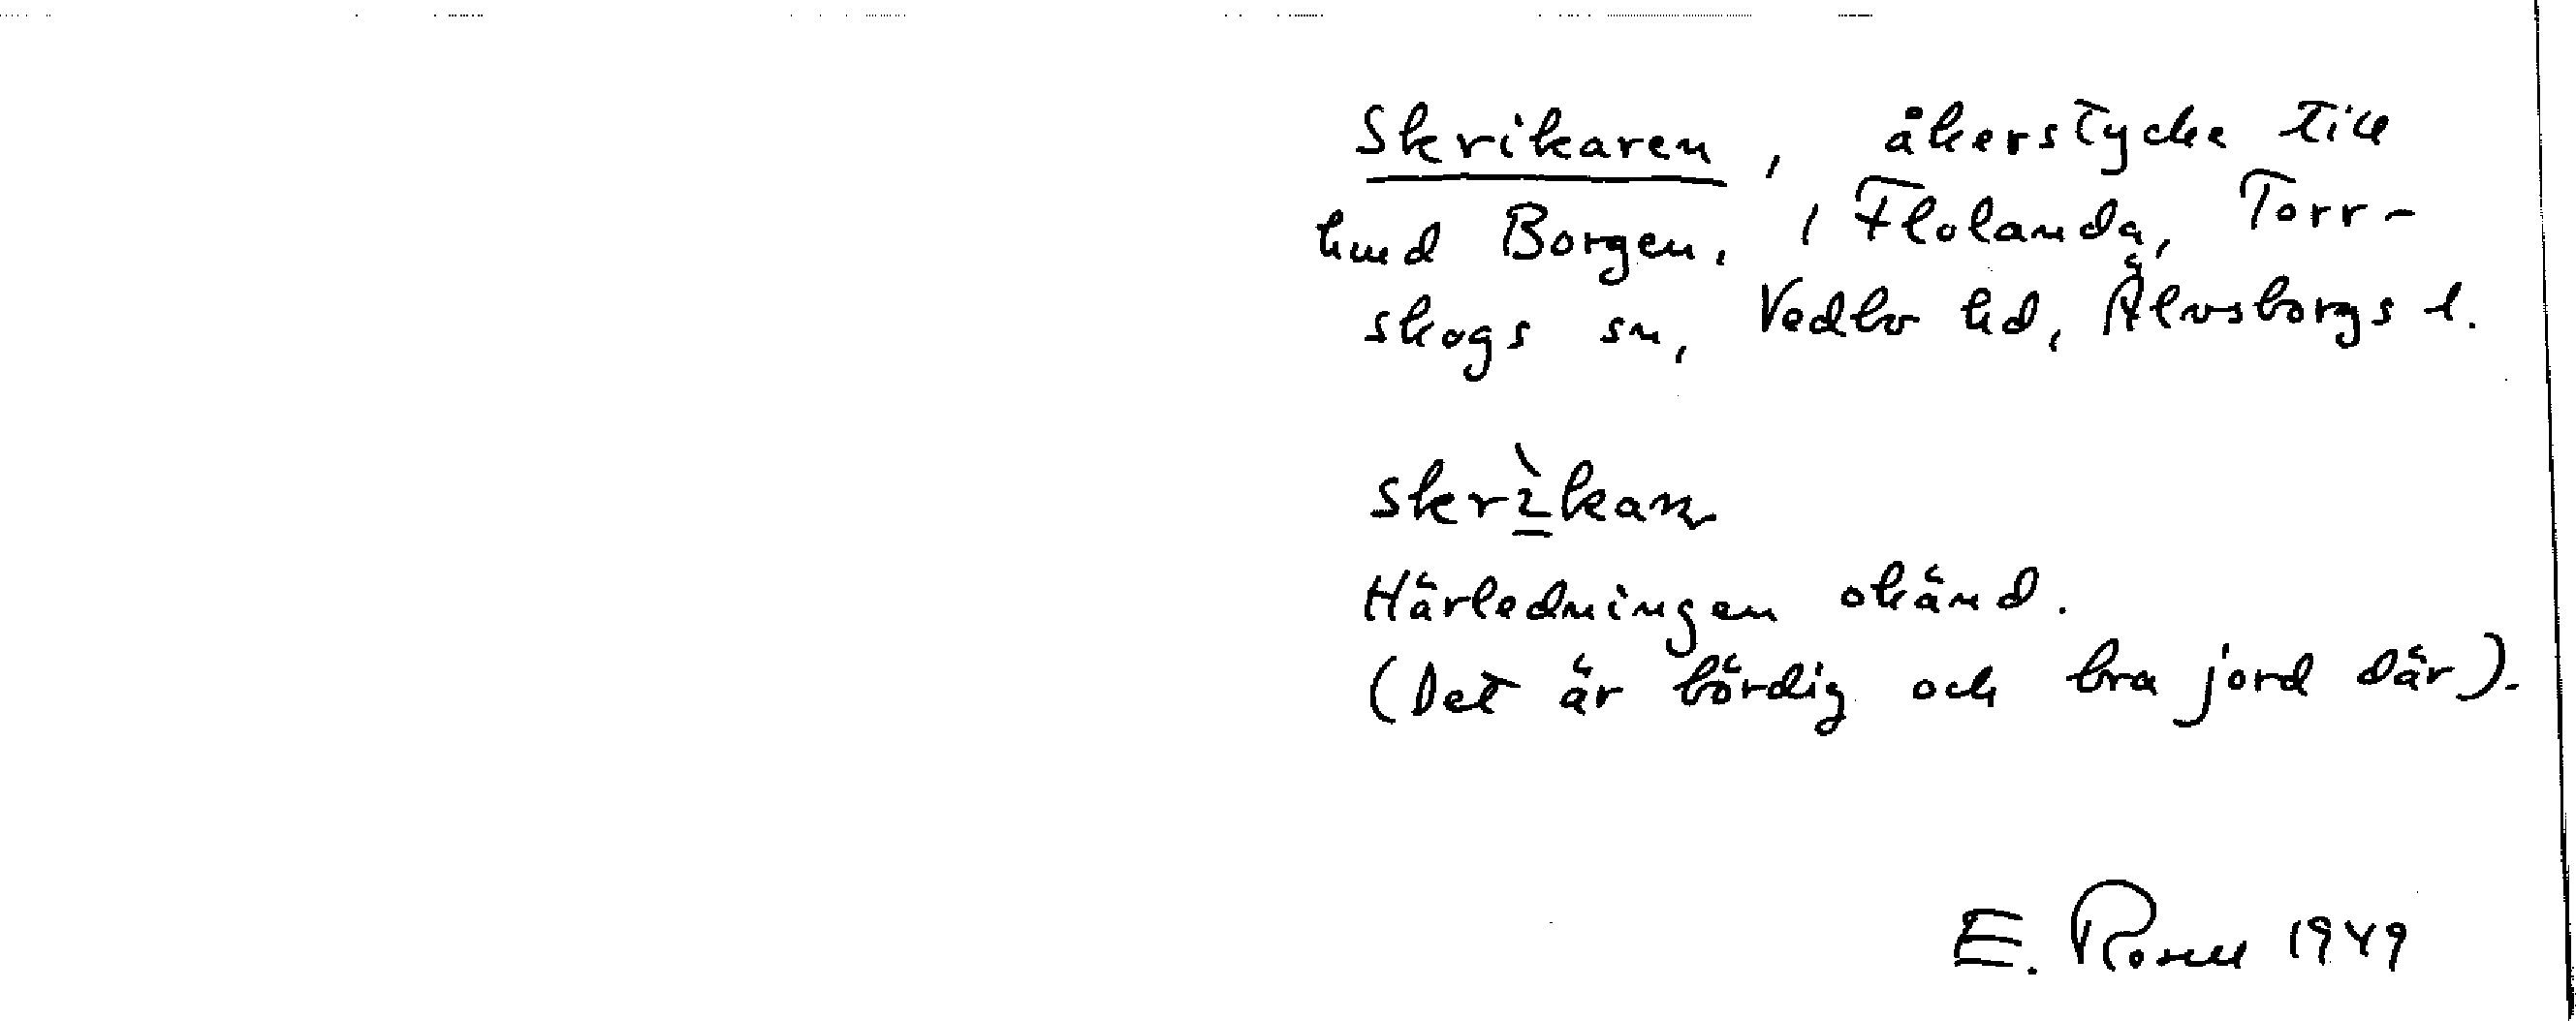 Skrikaren, åkerstycke till
hmd Borgen, 1 Flolanda, Torr-
skogs sn, Vedbo hd, Älvsborgs l.
Härledningen okänd.
(Det är bördig och bra jord där).
E. Rosell 1949